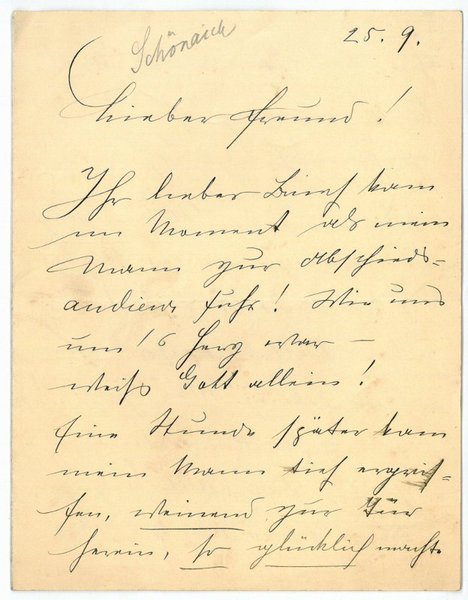 Schönaich
25. 9.
Lieber Freund!
Ihr lieber Brief kam
im Moment als mein
Mann zur Abschieds-
audienz fuhr! Wie uns
um's Herz war –
weiß Gott allein!
Eine Stunde später kam
mein Mann tief ergrif-
fen, weinend zur Tür
herein, so glücklich machte